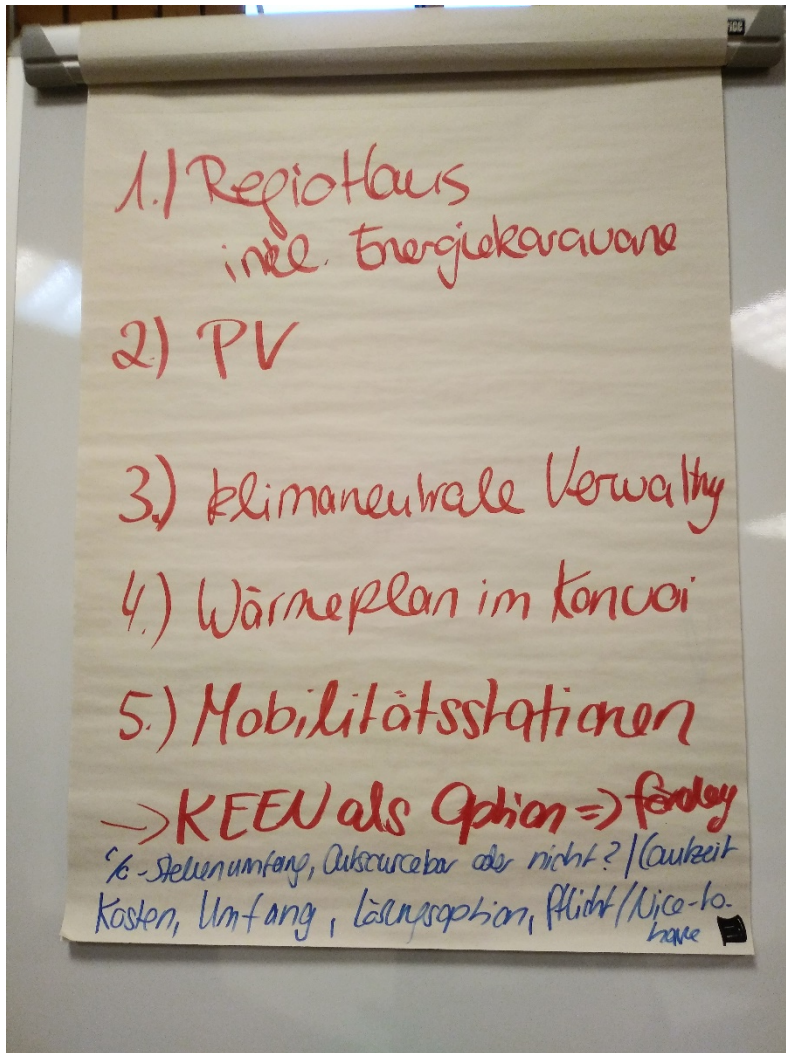 1.) RegioHaus
inkl. Energiekarawane
2.) PV
3.) klimaneutrale Verwaltung
4.) Wärmeplan im Konvoi
5.) Mobilitätsstationen
→ KEEN als Option =>
%-Stellenumfang, Outsourcebar oder nicht? / Laufzeit
Kosten, Umfang, Lösungsoption, Pflicht/Nice-to-
have